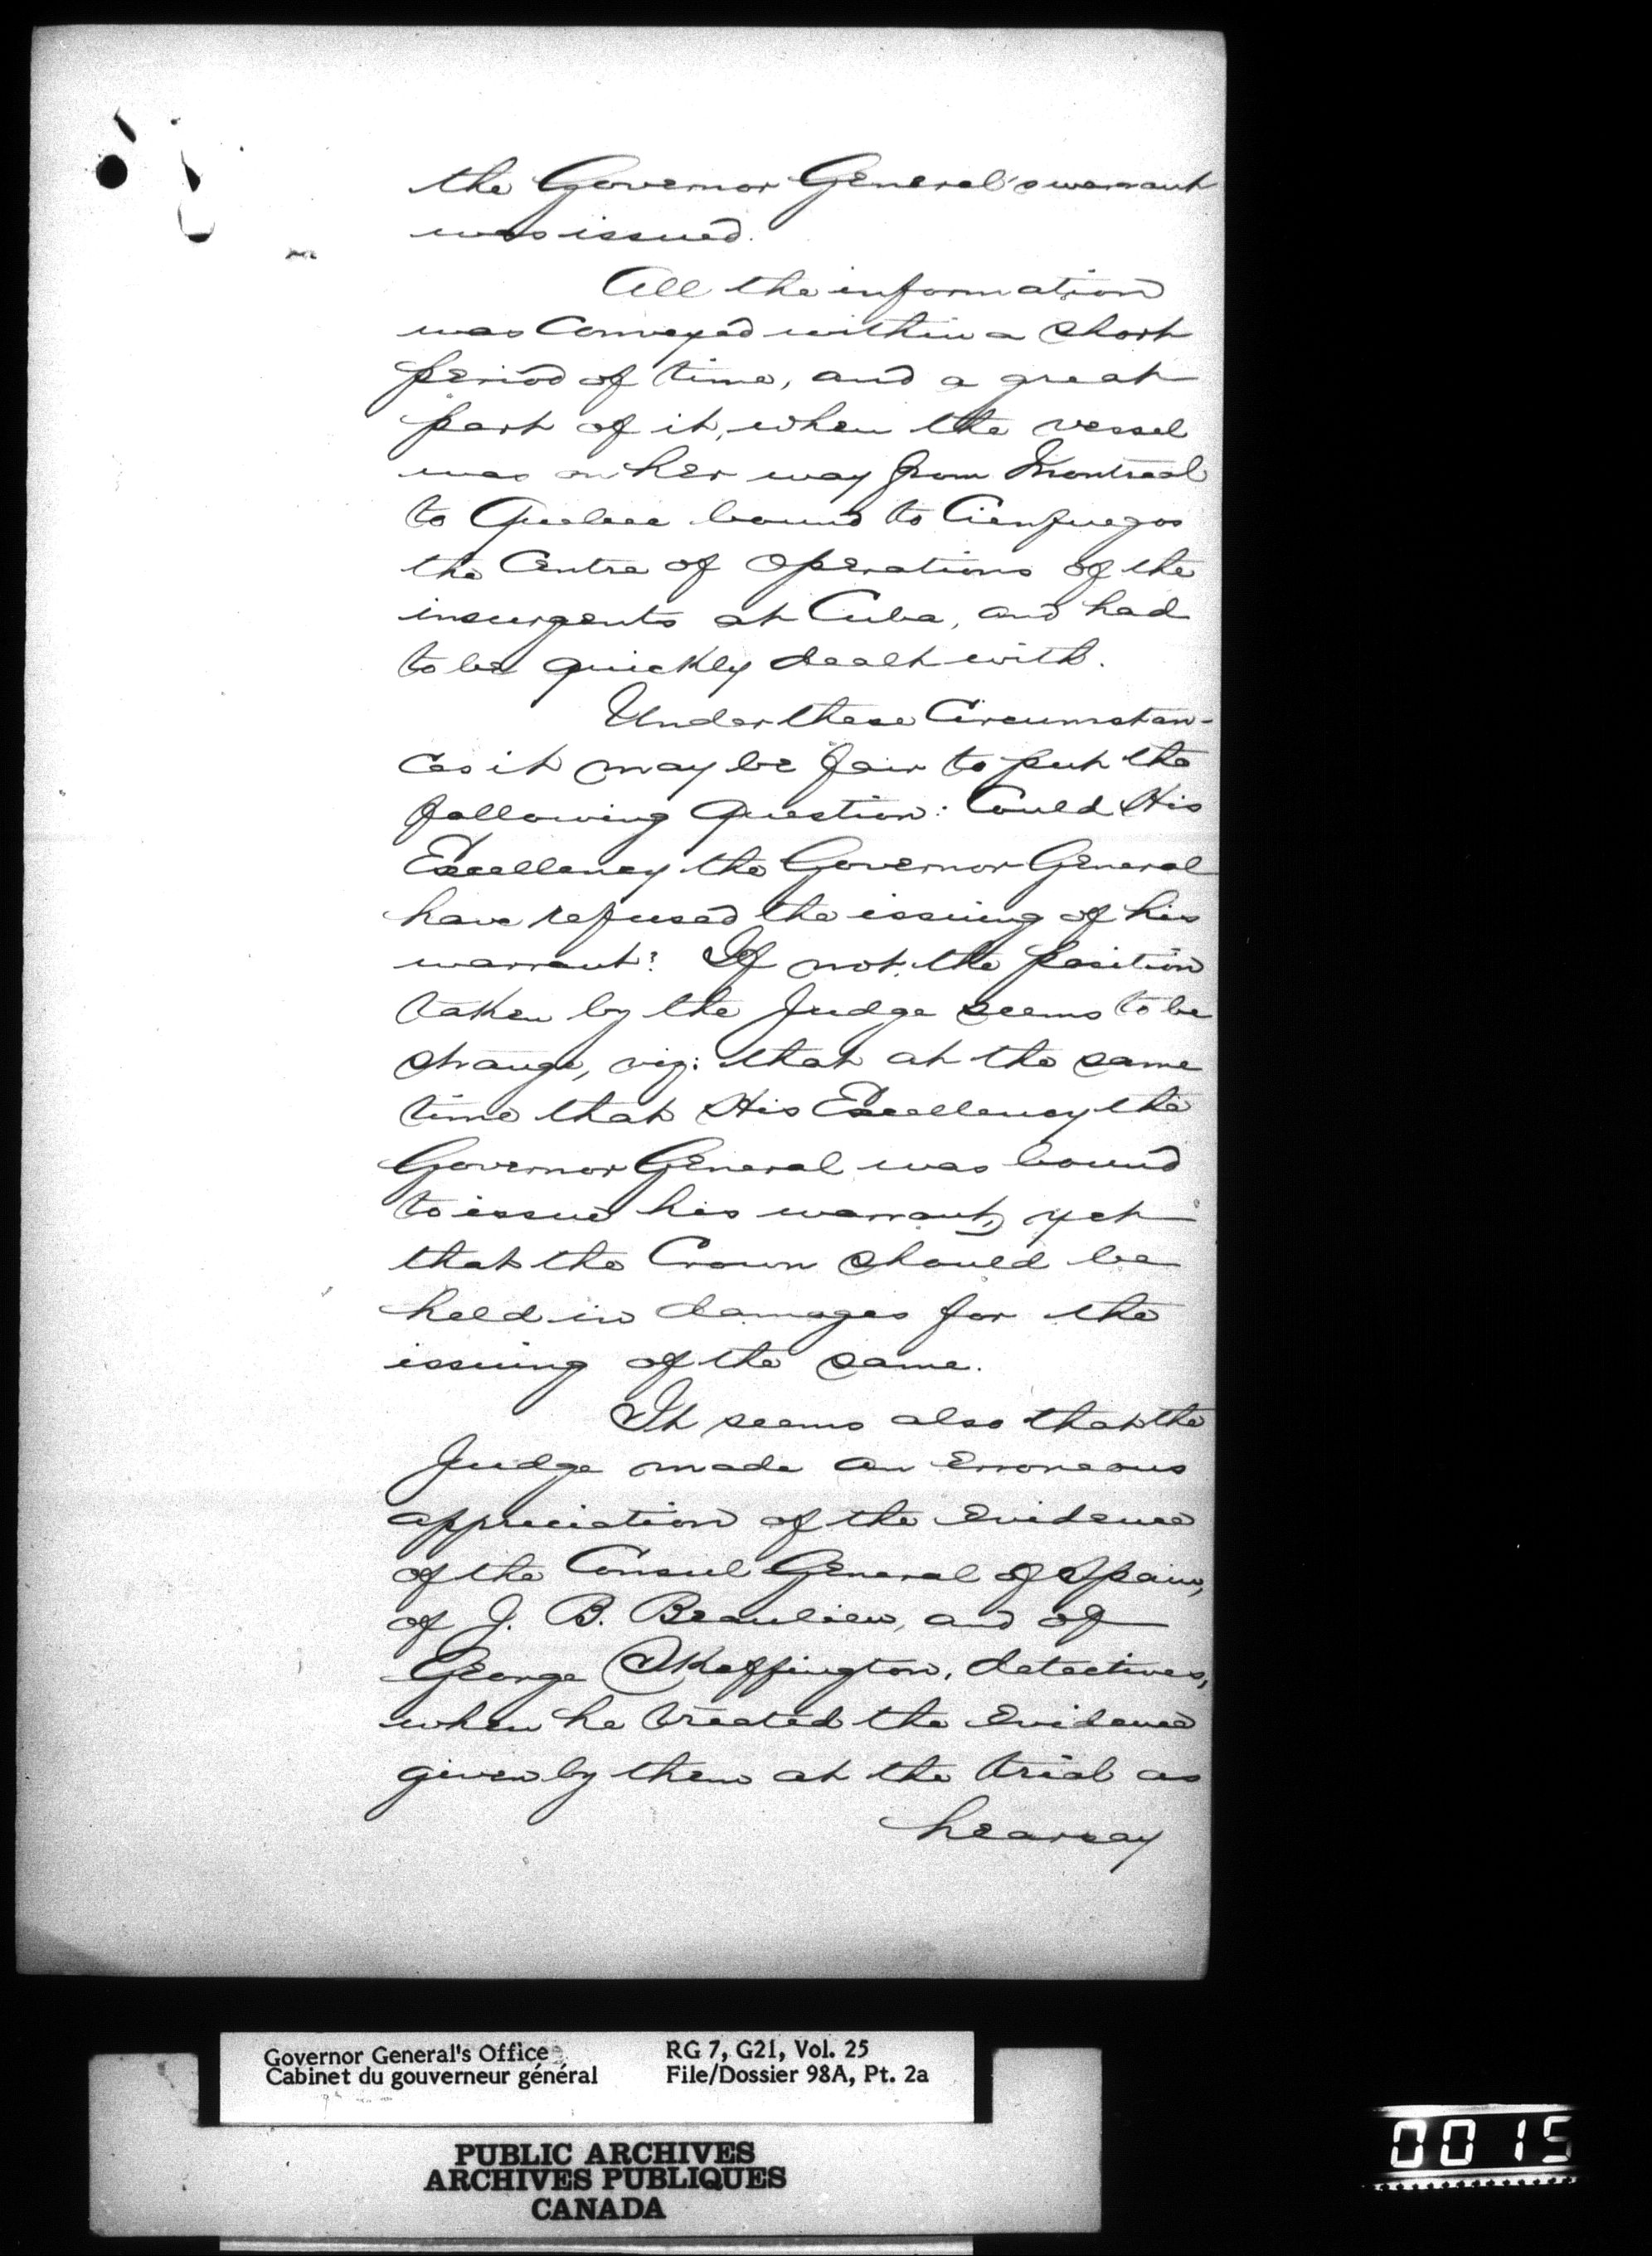 the Governor General's warrant
was issued.
All the information
was Conveyed within a short
period of time, and a great
part of it, when the vessel
was on her way from Montreal
to Quebec bound to Cienfuegos
the Centre of Operations of the
insurgents at Cuba, and had
to be quickly dealt with.
Under these Circumstan-
ces it may be fair to put the
following question: Could His
Excellency the Governor General
have refused the issuing of his
warrant? If not, the position
taken by the Judge seems to be
strange, viz: that at the same
time that His Excellency the
Governor General was bound
to issue his warrant, yet
that the Crown should be
held in damages for the
issuing of the same.
It seems also that the
Judge made an Erroneous
appreciation of the Evidence
of the Consul General of Spain,
of J. B. Beaulieu, and of
George Skeffington, detectives,
when he treated the Evidence
given by them at the trial as
hearsay
Governor General's Office
Cabinet du gouverneur général
RG 7, G21, Vol. 25
File/Dossier 98A, Pt. 2a
PUBLIC ARCHIVES
ARCHIVES PUBLIQUES
CANADA
0015